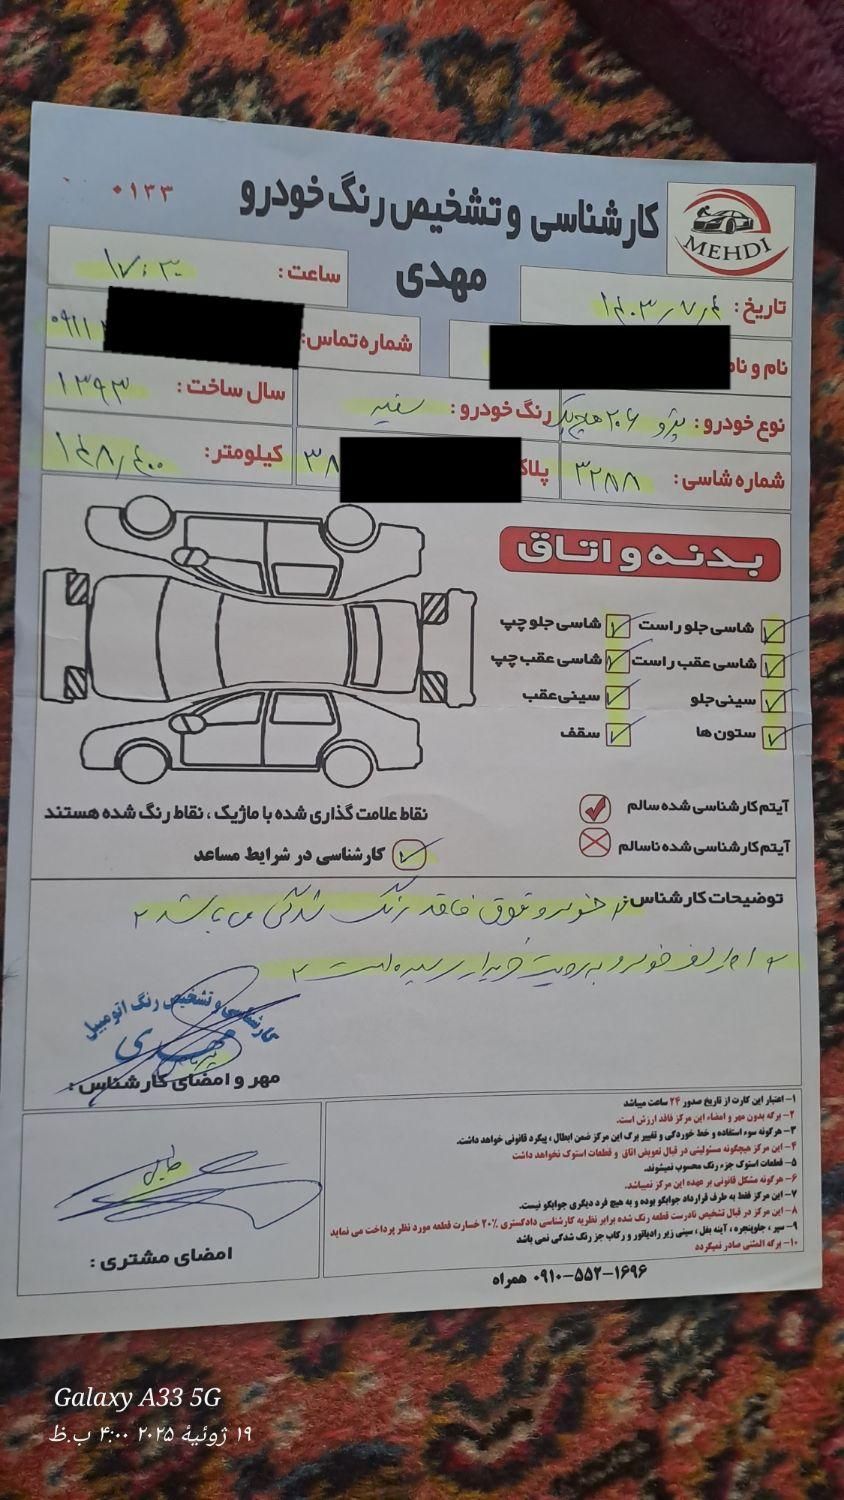 ۰۱۳۳
کارشناسی و تشخیص رنگ خودرو
مهدی
MEHDI
تاریخ: ۱۴۰۳/۷/۴
ساعت: ۱۷:۳۰
نام و نام
شماره تماس: ۰۹۱۱
نوع خودرو: پژو ۲۰۶ هچبک
رنگ خودرو: سفید
سال ساخت: ۱۳۹۳
شماره شاسی: ۳۲۸۸
پلاک ۳۸
کیلومتر: ۱۴۸/۴۰۰
بدنه و اتاق
شاسی جلو راست
شاسی جلو چپ
شاسی عقب راست
شاسی عقب چپ
سینی جلو
سینی عقب
ستون ها
سقف
آیتم کارشناسی شده سالم
آیتم کارشناسی شده ناسالم
نقاط علامت گذاری شده با ماژیک ، نقاط رنگ شده هستند
کارشناسی در شرایط مساعد
توضیحات کارشناس: خودرو فوق فاقد رنگ شدگی می باشد
خودرو به رویت خریدار رسیده است
کارشناسی و تشخیص رنگ اتومبیل
مهدی
مهر و امضای کارشناس :
امضای مشتری :
۱- اعتبار این کارت از تاریخ صدور ۲۴ ساعت میباشد
۲- برگه بدون مهر و امضاء این مرکز فاقد ارزش است.
۳- هرگونه سوء استفاده و خط خوردگی و تغییر برگ این مرکز ضمن ابطال ، پیگرد قانونی خواهد داشت.
۴- این مرکز هیچگونه مسئولیتی در قبال تعویض اتاق و قطعات استوک نخواهد داشت
۵- قطعات استوک جزء رنگ محسوب نمیشوند.
۶- هرگونه مشکل قانونی بر عهده این مرکز نمیباشد.
۷- این مرکز فقط به طرف قرارداد جوابگو بوده و به هیچ فرد دیگری جوابگو نیست.
۸- این مرکز در قبال تشخیص نادرست قطعه رنگ شده برابر نظریه کارشناسی دادگستری ۲۰٪ خسارت قطعه مورد نظر پرداخت می نماید
۹- سپر ، جلوپنجره ، آینه بغل ، سینی زیر رادیاتور و رکاب جز رنگ شدگی نمی باشد
۱۰- برگه المثنی صادر نمیگردد
۰۹۱۰-۵۵۲-۱۶۹۶ همراه
Galaxy A33 5G
۱۹ ژوئیهٔ ۲۰۲۵ ۴:۰۰ ب.ظ